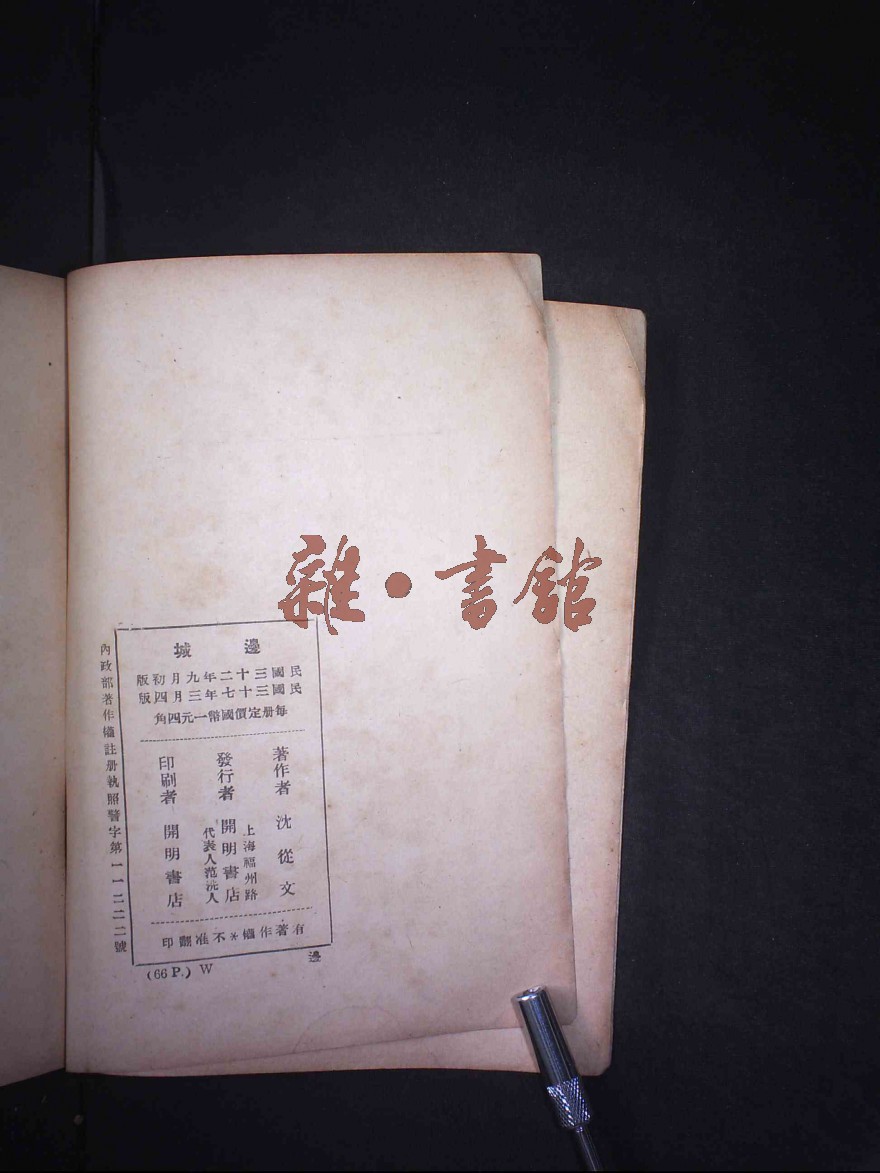 雜・書館
邊城
民國三十二年九月初版
民國三十七年三月四版
每册定價國幣一元四角
著作者 沈從文
發行者 上海福州路 開明書店 代表人范洗人
印刷者 開明書店
有著作權*不准翻印
內政部著作權註册執照警字第一一二二二號
邊
(66 P.) W